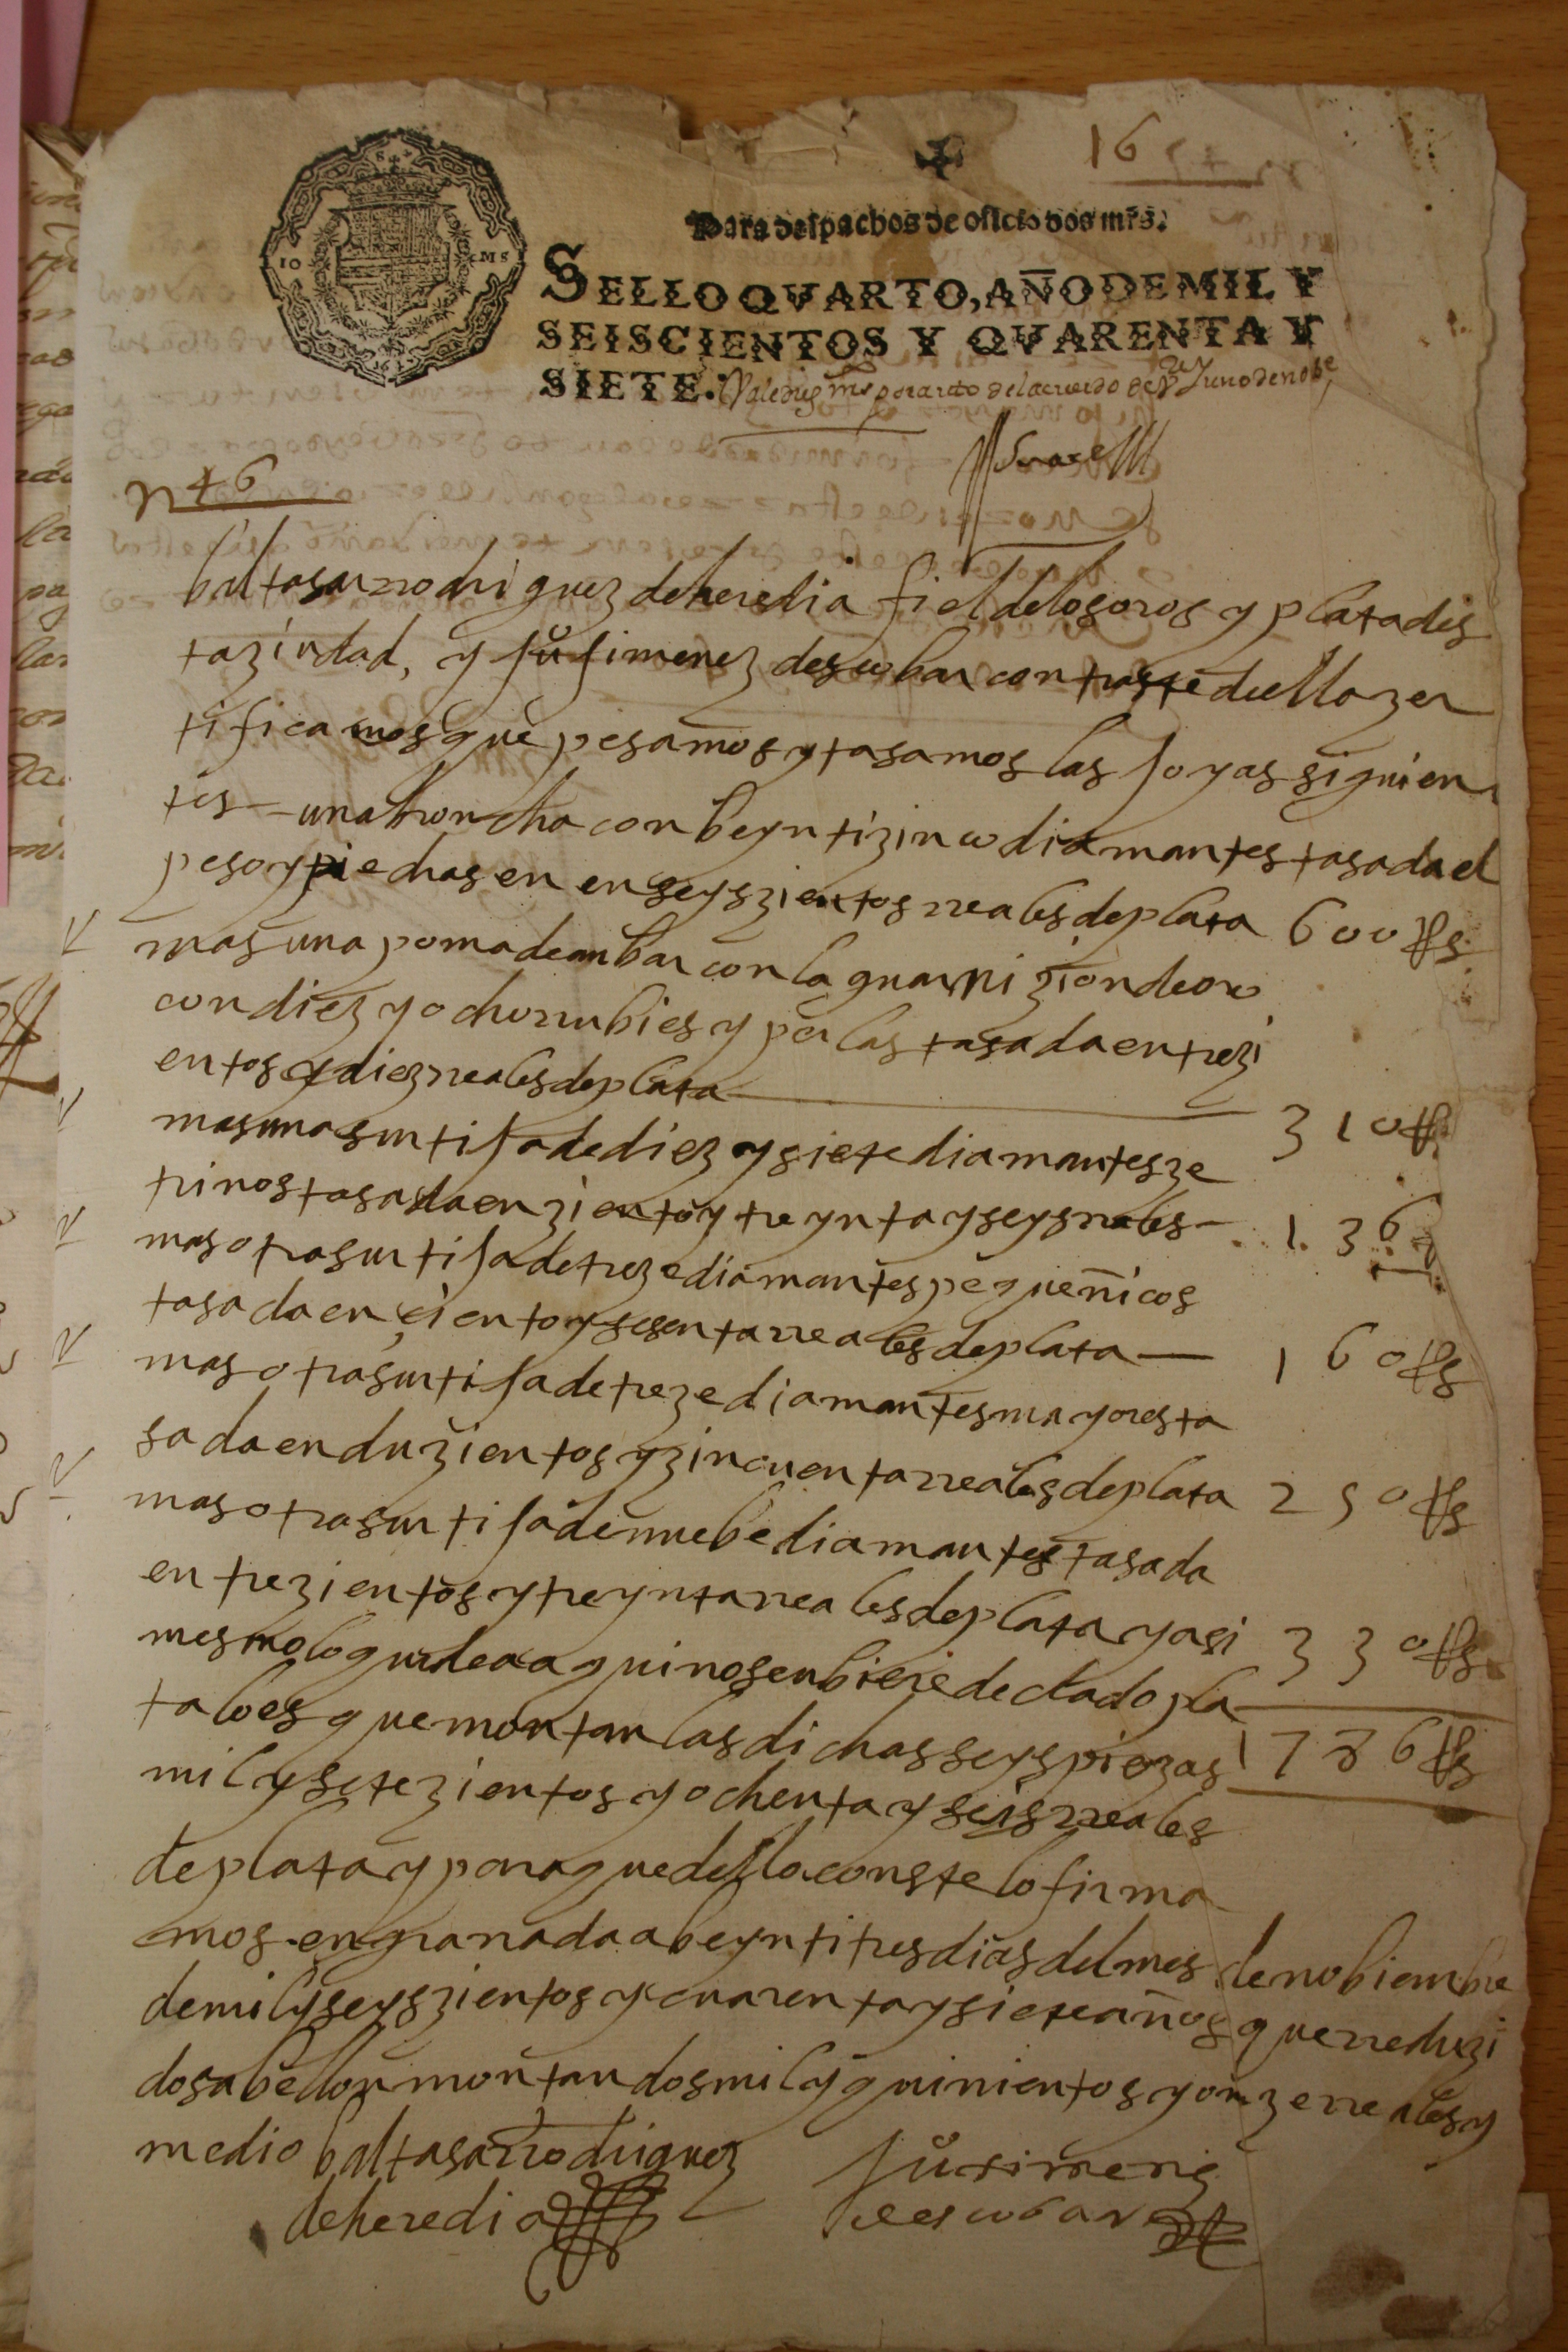 Para despachos de oficio dos mrs.
SELLO QVARTO, AÑO DE MIL Y
SEISCIENTOS Y QVARENTA Y
SIETE.
por auto del acuerdo de
nº 46
baltasar rrodriguez de heredia fiel de los oros y plata des
ta ziudad, y juº jimenez descobar contraste de ella zer
tificamos que pesamos y tasamos las joyas siguien
tes – una broncha con beynti zinco diamantes tasada el
peso y piedras en en seys zientos rreales de plata 600 Rs
mas una poma de anbar con la guarnizion de oro
con diez y ocho rrubies y perlas tasada en trezi
entos y diez rreales de plata 310 R
mas una surtija de diez y siete diamantes ze
trinos tasada en ziento y treynta y seys rreales – 136
mas otra surtija de treze diamantes pequeñicos
tasada en çiento y sesenta rreales de plata — 160 Rs
mas otra surtija de treze diamantes mayores ta
sada en duzientos y zincuenta rreales de plata 250 Rs
mas otra surtija de nuebe diamantes tasada
en trezientos y treynta rreales de plata y asi 330 Rs
mesmo lo que de aqui nos enbiere declado pla
ta lo es que montan las dichas seys piezas 1786 Rs
mil y setezientos y ochenta y seis rreales
de plata y para que dello conste lo firma
mos en granada a beyntitres dias del mes de nobienbre
de mil y seyszientos y cuarenta y siete años que rreduzi
dos a bellon montan dos mil y quinientos y onze rreales y
medio baltasar rrodriguez juº ximenez
de heredia de escobar